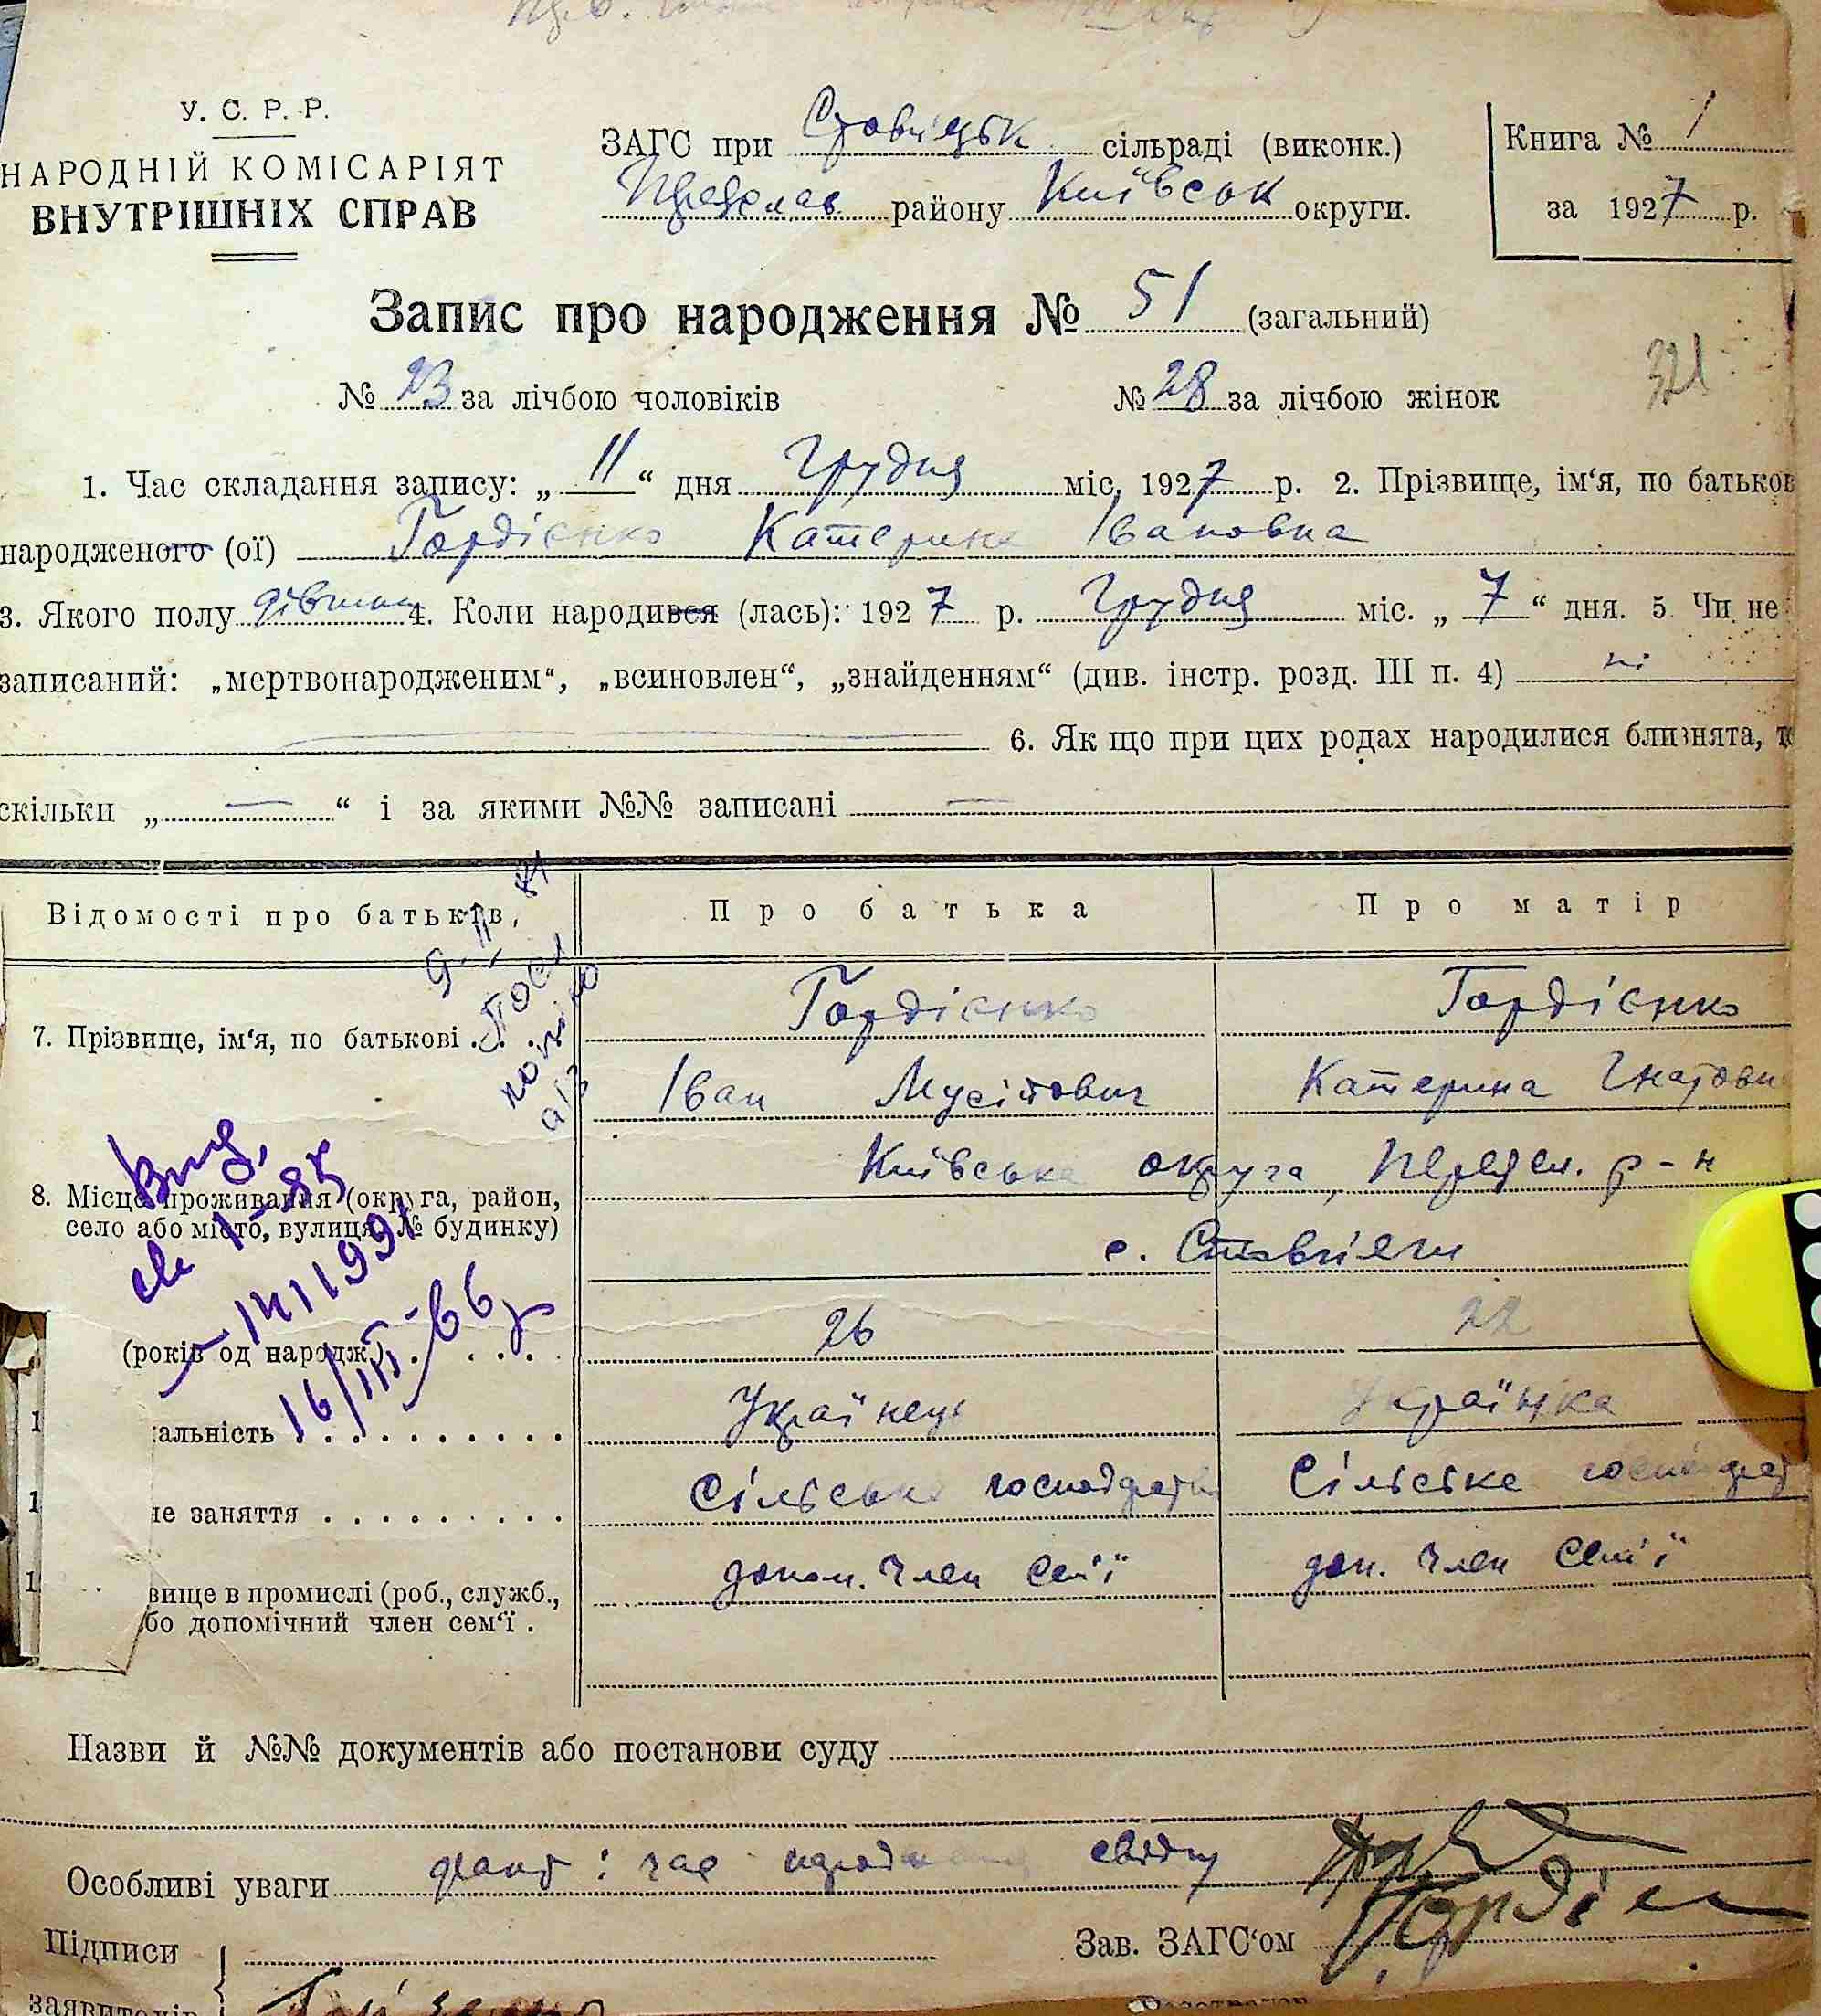 У. С. Р. Р.
НАРОДНІЙ КОМІСАРІЯТ
ВНУТРІШНІХ СПРАВ
ЗАГС при Ставицьк сільраді (виконк.)
району Київськ округи.
Книга № 1
за 1927 р.
Запис про народження № 51 (загальний)
321
№ 23 за лічбою чоловіків № 28 за лічбою жінок
1. Час складання запису: „ 11 “ дня Грудня міс. 1927 р. 2. Прізвище, ім‘я, по батьков
народженого (ої) Гордієнко Катерина Івановна
3. Якого полу 4. Коли народився (лась): 1927 р. Грудня міс. „ 7 “ дня. 5. Чи не
записаний: „мертвонародженим“, „всиновлен“, „знайденням“ (див. інстр. розд. III п. 4) ні
6. Як що при цих родах народилися близнята, т
скільки „ — “ і за якими №№ записані —
Відомості про батьків, Про батька Про матір
7. Прізвище, ім‘я, по батькові Гордієнко Гордієнко
Іван Мусійович Катерина Гнатовн
8. Місце проживання (округа, район, Київська округа, р-н
село або місто, вулиця № будинку) с.
(років од народж.) 26 22
альність Українець Українка
не заняття Сільське господарств Сільське господар
вище в промислі (роб., служб., допом. член сем'ї доп. член сем'ї
бо допомічний член сем‘ї .
16/III-66р
Назви й №№ документів або постанови суду
Особливі уваги
Підписи
Зав. ЗАГС‘ом
заявителів